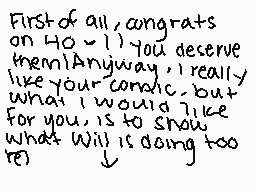 First of all, congrats
on 40-11 you deserve
them! Anyway, i really
like your comic, but
what i would like
for you, is to show
what Will is doing too